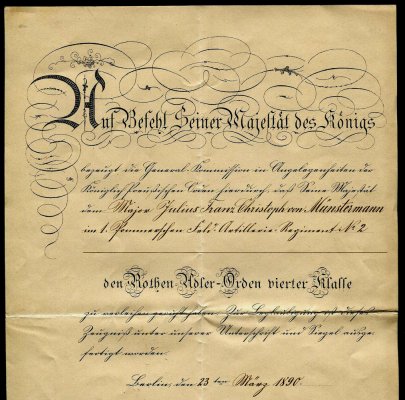 Auf Befehl Seiner Majestät des Königs
bezeugt die General-Kommission in Angelegenheiten der
Königlich Preußischen Orden hierdurch, daß Seine Majestät
dem Major Julius Franz Christoph von Münstermann
im 1. Pommerschen Feld-Artillerie-Regiment No 2
den Rothen Adler-Orden vierter Klasse
zu verleihen geruht haben. Zur Beglaubigung ist dieses
Zeugniß unter unserer Unterschrift und Siegel ausge-
fertigt worden.
Berlin, den 23 ten März 1890.